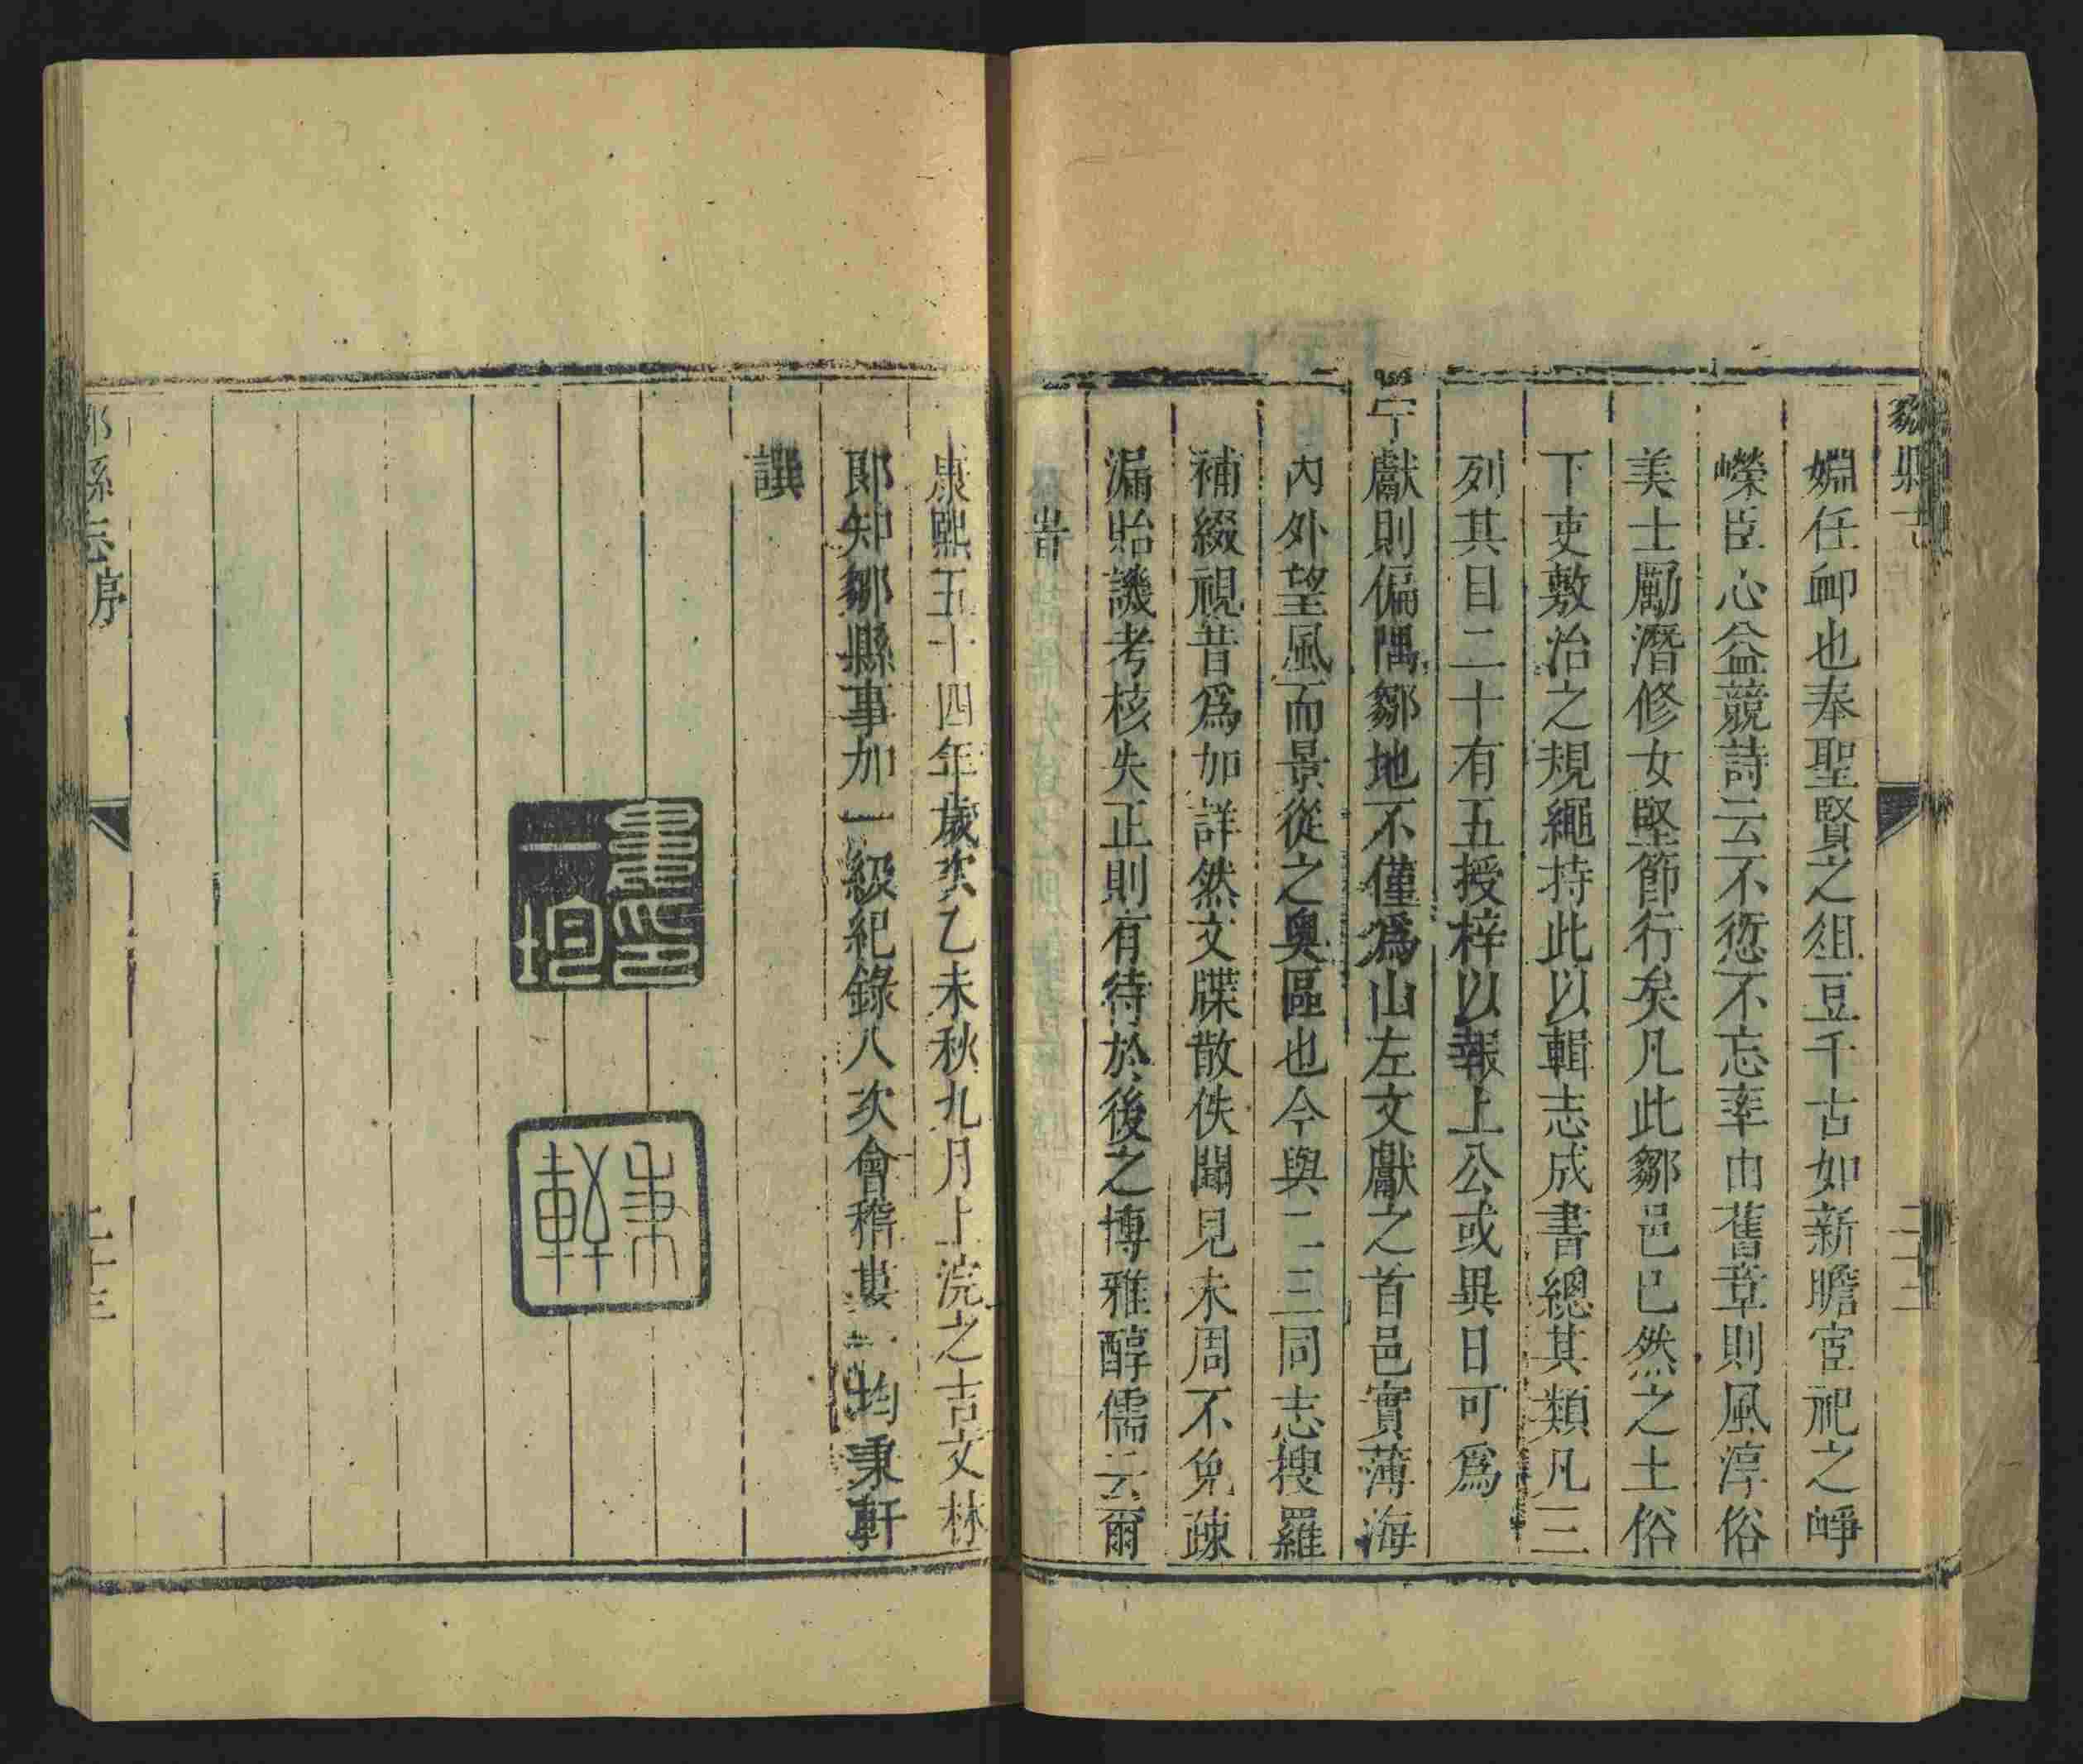 鄒縣志
婣任卹也奉聖賢之俎豆千古如新瞻宦祀之崢
嶸臣心益競詩云不愆不忘率由舊章則風淳俗
美士勵潛修女堅節行矣凡此鄒邑已然之土俗
下吏敷治之規繩持此以輯志成書總其類凡三
列其目二十有五授梓以報上公或異日可爲
獻則偏隅鄒地不僅爲山左文獻之首邑實薄海
內外望風而景從之奧區也今與二三同志搜羅
補綴視昔爲加詳然文牒散佚聞見未周不免疎
漏貽譏考核失正則有待於後之博雅醇儒云爾
旹
康熙五十四年歲次乙未秋九月上浣之吉文林
郎知鄒縣事加一級紀錄八次會稽婁一均秉軒
譔
婁印一均
秉軒
縣志序